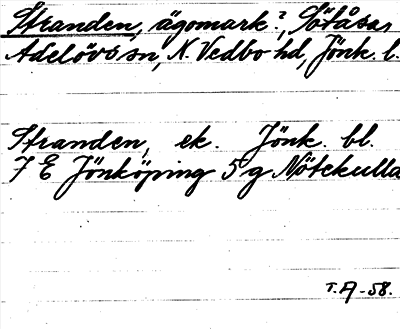 Stranden, ägomark?, Sötåsa,
Adelövs sn, N. Vedbo hd, Jönk. l.
Stranden, ek. Jönk. bl.
7 E Jönköping 5 g Nötekulla
T.A-58.